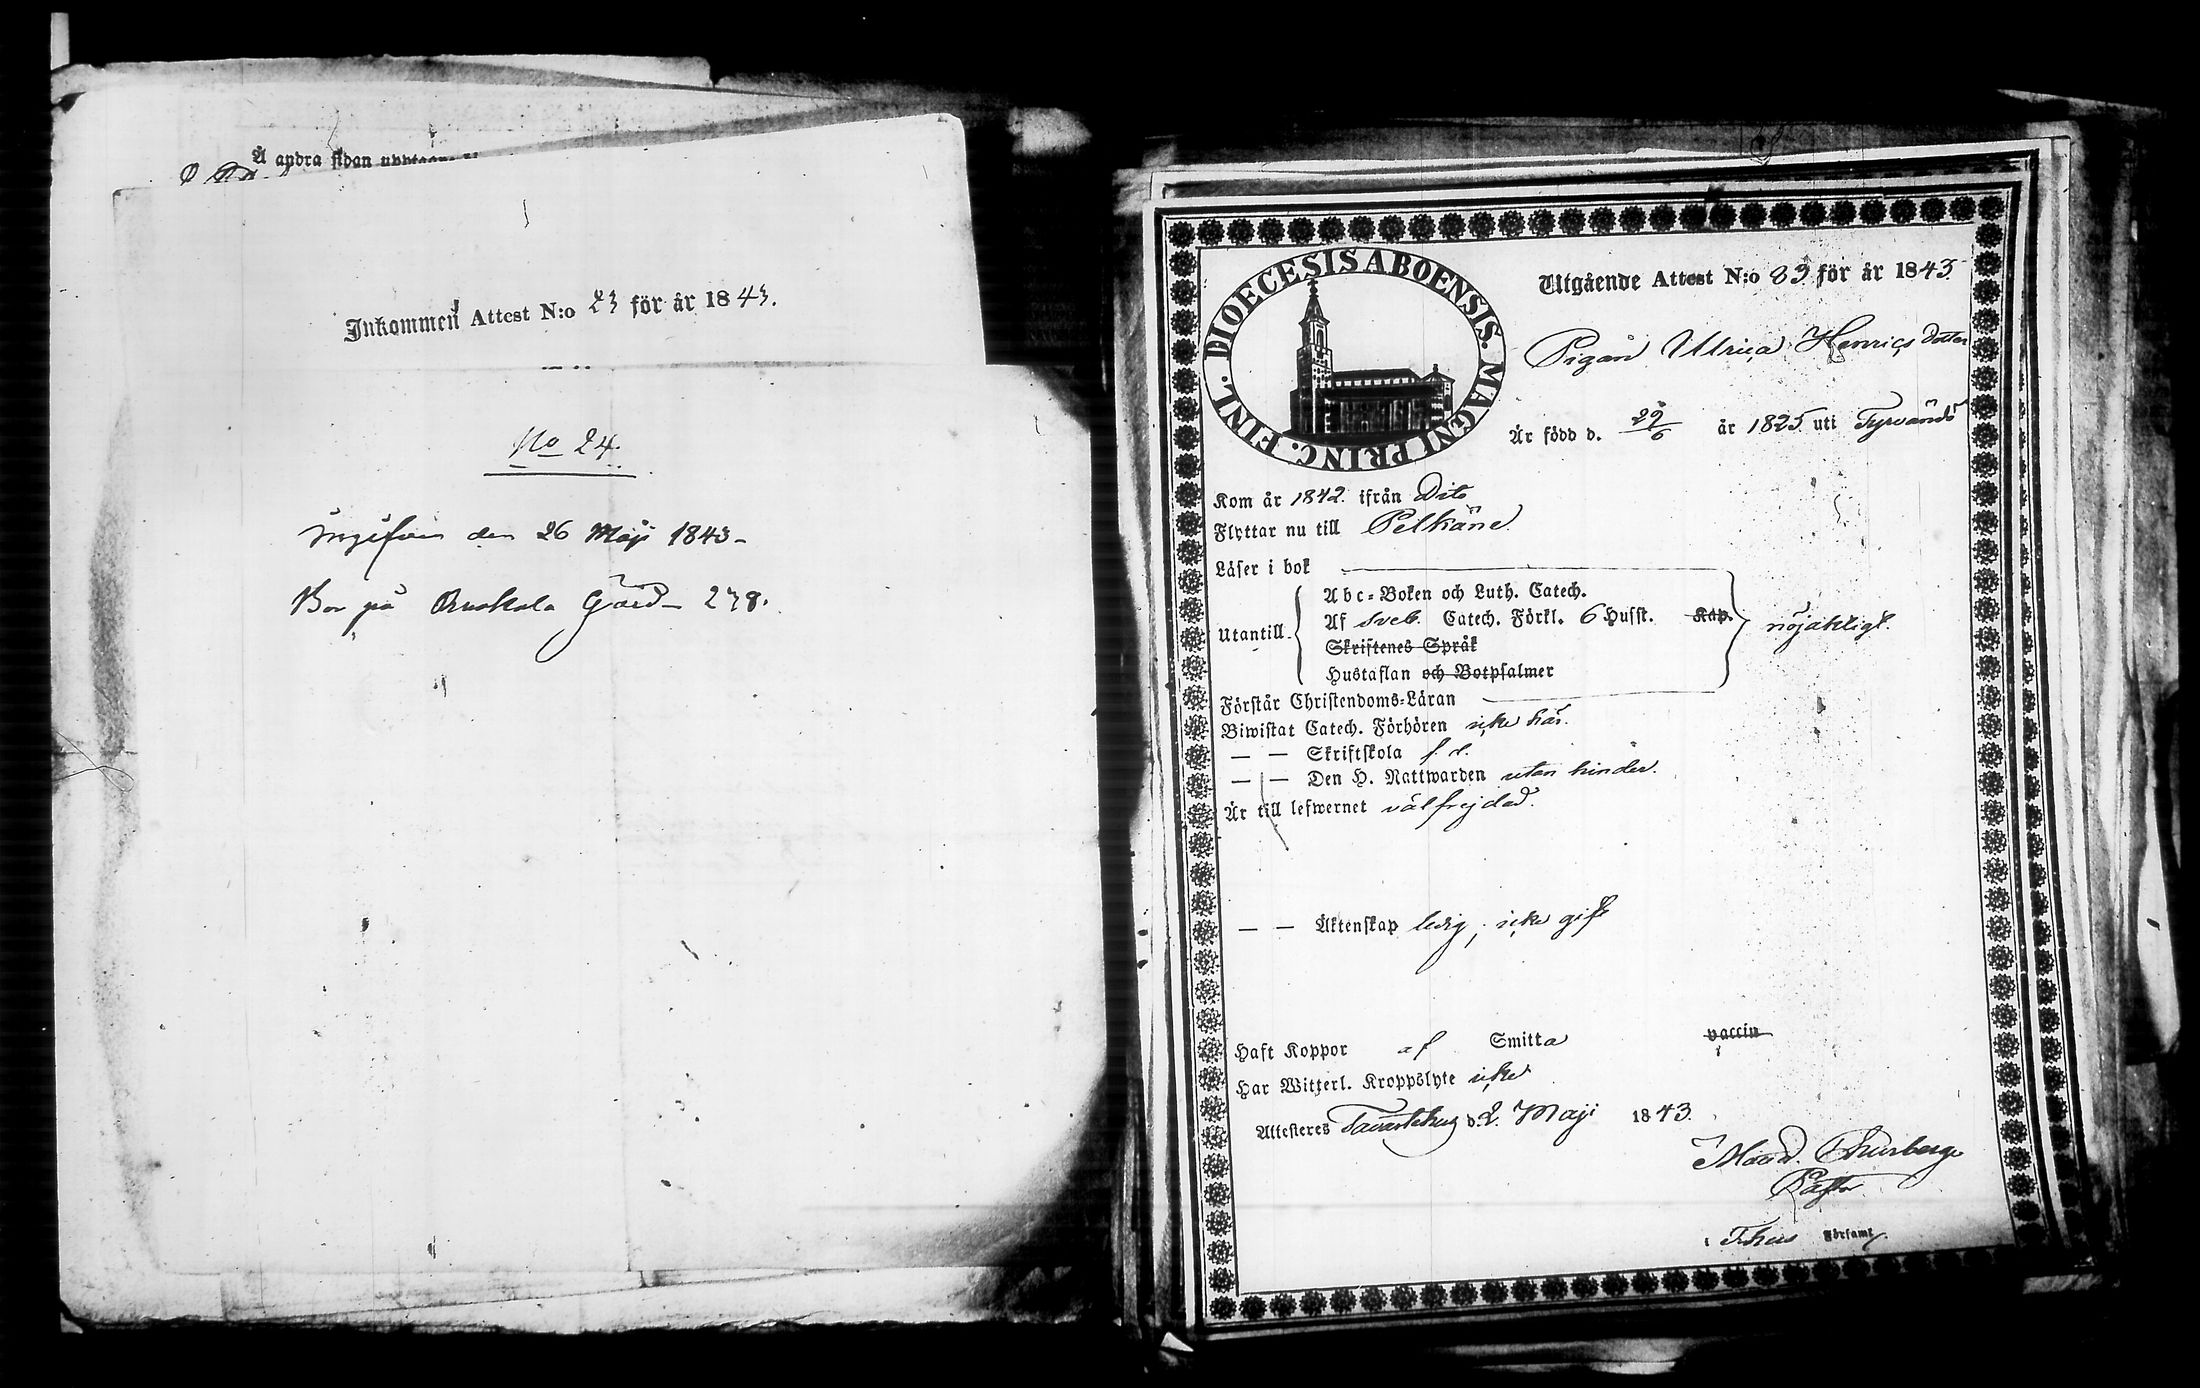 Å andra sidan
Inkommen Attest N:o 23 för år 1843.
No 24.
den 26 Maji 1843
Bor på Gård 278.
DIOECESIS ABOENSIS. MAGNI PRINC. FINL.
Utgående Attest N:o 83 för år 1843
Pigan Ulrica Henrics dotter
Är född d. 29/6 år 1825 uti Tyrvändö
Kom år 1842. ifrån Dito
Flyttar nu till Pelkäne
Läser i bok
Abc-Boken och Luth. Catech.
Af Sveb. Catech. Förkl. 6 Husst. Kap.
Utantill nöjaktigt.
Skriftenes Språk
Hustaflan och Botpsalmer
Förstår Christendoms-Läran
Biwistat Catech. Förhören icke här.
— — Skriftskola f. d.
— — Den H. Nattwarden utan hinder.
Är till lefwernet välfrejdad.
— — Äktenskap ledig, icke gift
Haft Koppor af Smitta vaccin
Har Witterl. Kroppslyte icke
Attesteres Tavastehus d. 2. Maji 1843.
Thurberg
Pastor
i Thus Församl.